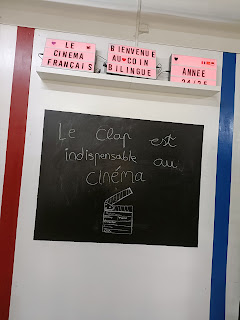 LE
CINEMA
FRANÇAIS
BIENVENUE
AU♥COIN
BILINGUE
ANNÉE
24/25
Le Clap est
indispensable au
cinéma